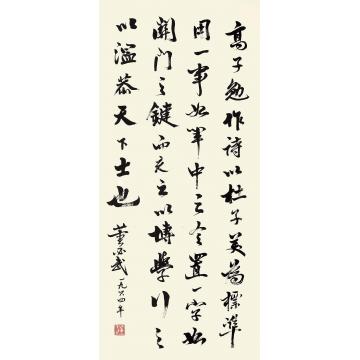 高子勉作詩以杜子美為標準
用一事如軍中之令置一字如
關門之鍵而充之以博學行之
以溫恭天下士也
董必武一九六四年